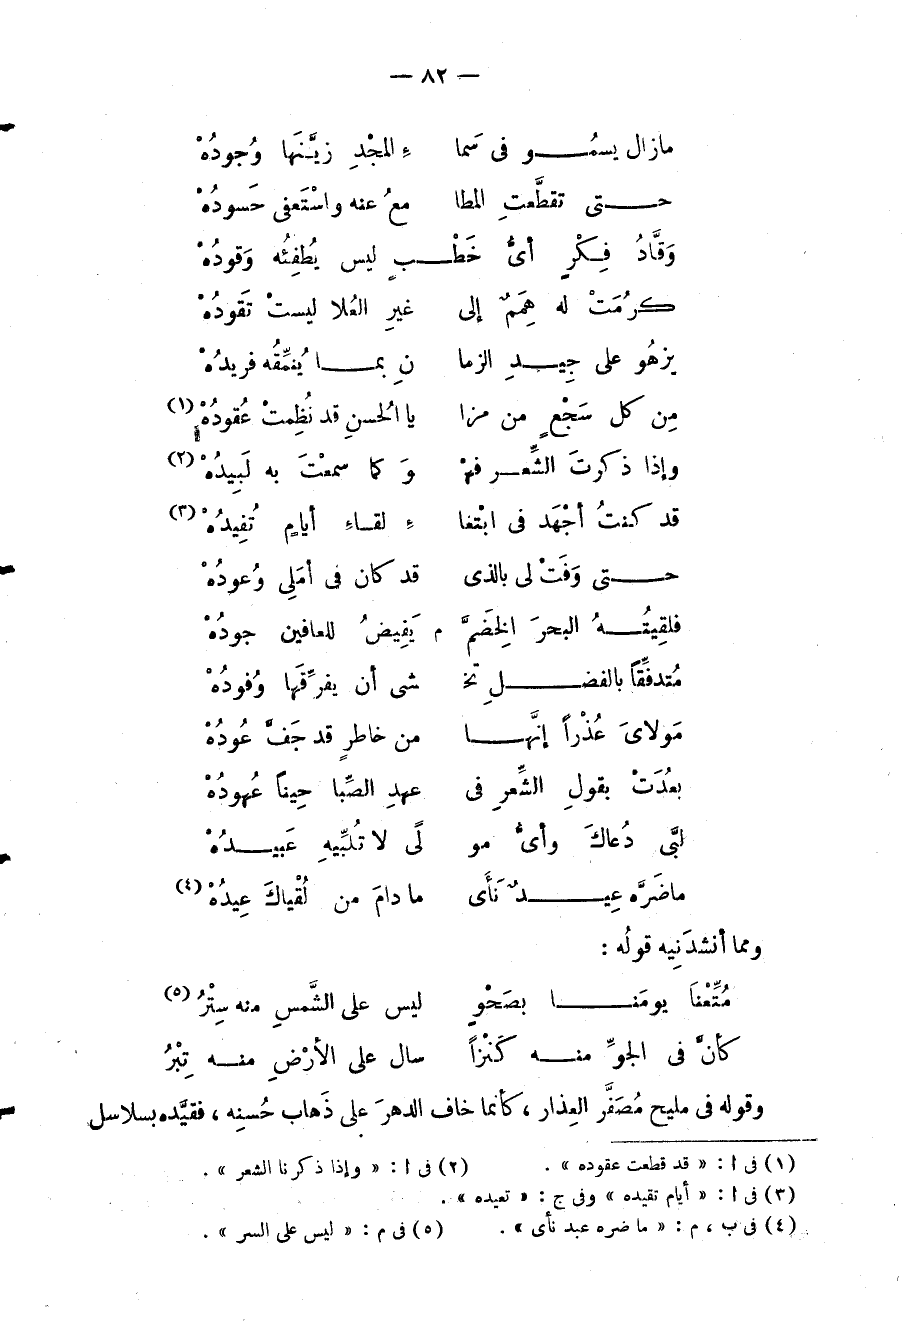 — ٨٢ —
مازال يسمُـــو فى سَما ءِ المجْدِ زيَّنَها وُجودُهْ
حـــتى تقطَّعتِ المطا معُ عنه واسْتَعفى حَسودُهْ
وَقَّادُ فِـكْرٍ أىُّ خَطْـــبٍ ليس يُطفِئُه وَقودُهْ
كرُمَتْ له هِمَمٌ إلى غيرِ العُلا ليستْ تَقودُهْ
يزهُو على جِيـــدِ الزما نِ بمـــا يُنمِّقُه فريدُهْ
مِن كل سَجْعٍ من مزا يا الحُسنِ قد نُظِمتْ عُقودُهْ (١)
وإذا ذكرتَ الشِّعـــر فهْ وَ كما سمعْتَ به لَبِيدُهْ (٢)
قد كنتُ أجْهَد فى ابْتغا ءِ لقـاءِ أيامٍ تُفِيدُهْ (٣)
حـــتى وَفَتْ لى بالذى قد كان فى أمَلى وُعودُهْ
فلقِيتُـــهُ البحرَ الِخضَمَّ م يَفِيضُ للعافين جودُهْ
مُتدفِّقاً بالفضـــلِ تخـ شى أن يفرِّقَها وُفودُهْ
مَولاىَ عُذْراً إنَّهـــا من خاطرٍ قد جَفَّ عُودُهْ
بعُدَتْ بقولِ الشِّعرِ فى عهدِ الصِّبا حِيناً عُهودُهْ
لبَّى دُعاكَ وأىُّ مو لًى لا تُلبِّيهِ عَبيـــدُهْ
ماضَرَّه عِيـــدٌ نَأَى ما دامَ من لُقْياكَ عِيدُهْ (٤)
ومما أنشدَنِيه قولُه :
مُتِّعْنَا يومَنـــا بصَحْوٍ ليس على الشَّمسِ منه سِتْرُ (٥)
كأنَّ فى الجوِّ منـــه كَنْزاً سال على الأرْضِ منـــه تِبْرُ
وقوله فى مليح مُصَفَّر العِذار ، كأنما خاف الدهرَ على ذَهاب حُسنِه ، فقيَّده بسلاسل
(١) فى ا : « قد قطعت عقوده » . (٢) فى ا : « وإذا ذكرنا الشعر » .
(٣) فى ا : « أيام تقيده » وفى ج : « تعيده » .
(٤) فى ب ، م : « ما ضره عبد نأى » . (٥) فى م : « ليس على السر » .